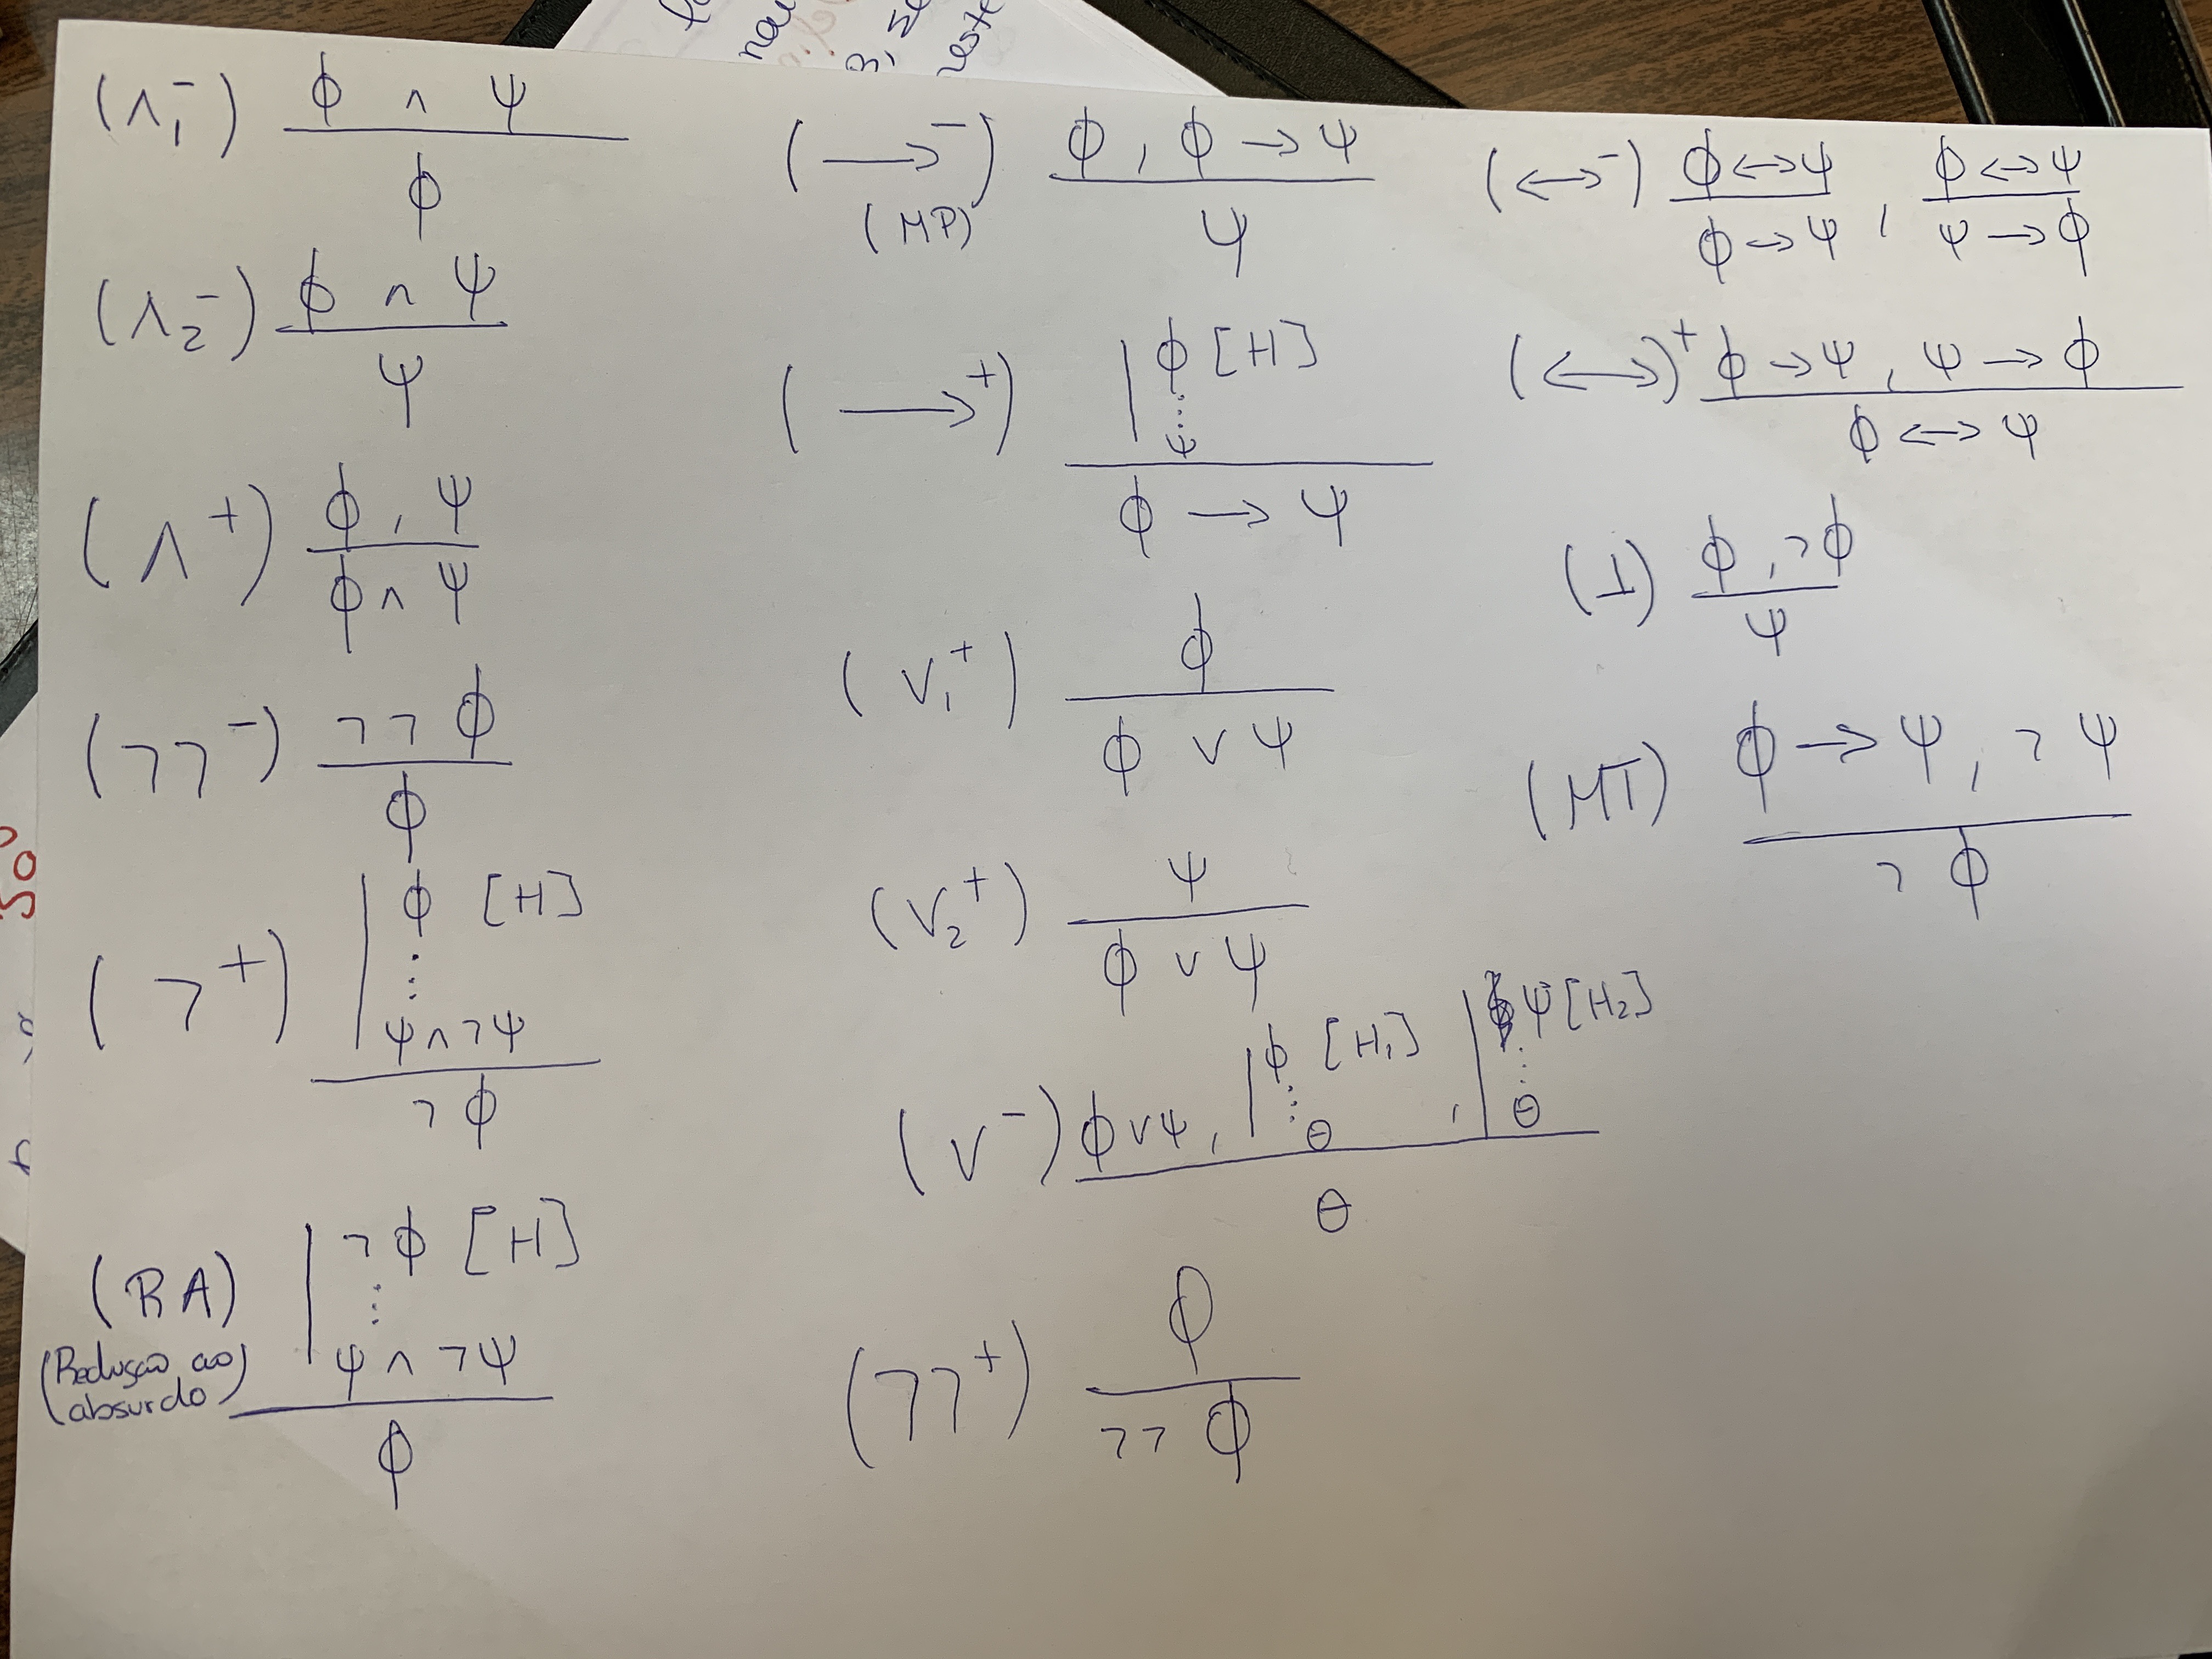 (∧₁⁻) ϕ ∧ ψ
ϕ
(∧₂⁻) ϕ ∧ ψ
ψ
(∧⁺) ϕ , ψ
ϕ ∧ ψ
(¬¬⁻) ¬¬ϕ
ϕ
(¬⁺) | ϕ [H]
| ⋮
| ψ ∧ ¬ψ
¬ϕ
(RA) | ¬ϕ [H]
(Redução ao absurdo) | ⋮
| ψ ∧ ¬ψ
ϕ
(→⁻) ϕ , ϕ → ψ
(MP) ψ
(→⁺) | ϕ [H]
| ⋮
| ψ
ϕ → ψ
(∨₁⁺) ϕ
ϕ ∨ ψ
(∨₂⁺) ψ
ϕ ∨ ψ
(∨⁻) ϕ ∨ ψ , | ϕ [H₁] ⋮ θ , | ψ [H₂] ⋮ θ
θ
(¬¬⁺) ϕ
¬¬ϕ
(↔⁻) ϕ ↔ ψ ϕ ↔ ψ
ϕ → ψ , ψ → ϕ
(↔)⁺ ϕ → ψ , ψ → ϕ
ϕ ↔ ψ
(T) ϕ , ¬ϕ
ψ
(MT) ϕ → ψ , ¬ψ
¬ϕ
50